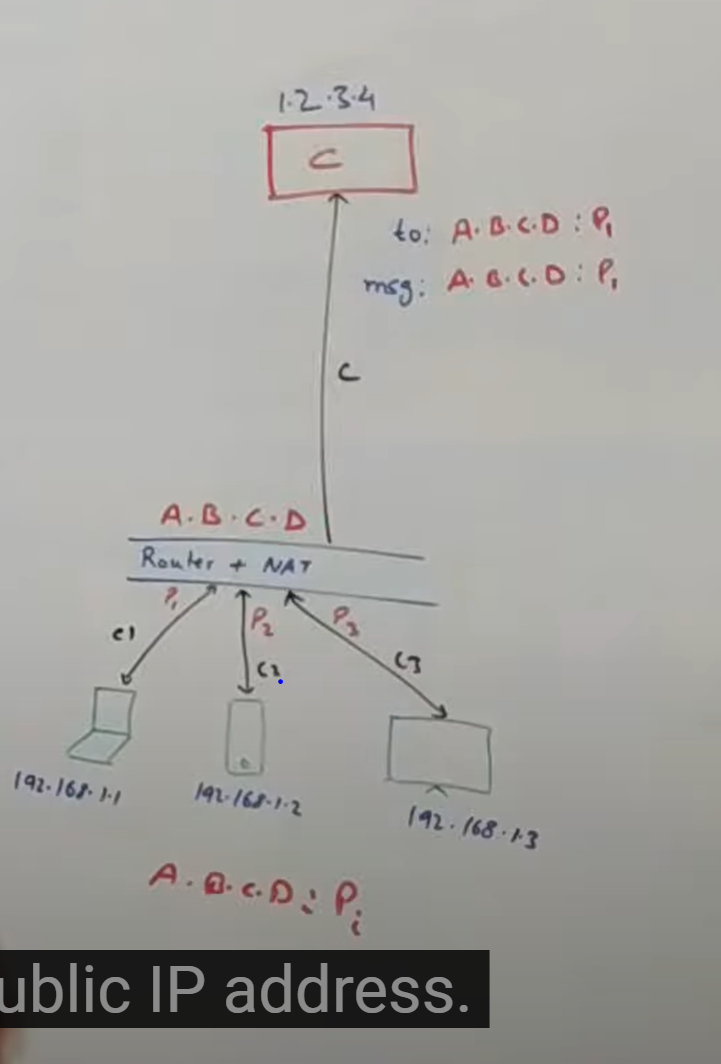 1.2.3.4
C
to: A.B.C.D : P1
msg: A.B.C.D : P1
C
A.B.C.D
Router + NAT
P1 P2 P3
C1 C2 C3
192.168.1.1 192.168.1.2 192.168.1.3
A.B.C.D : Pi
ublic IP address.